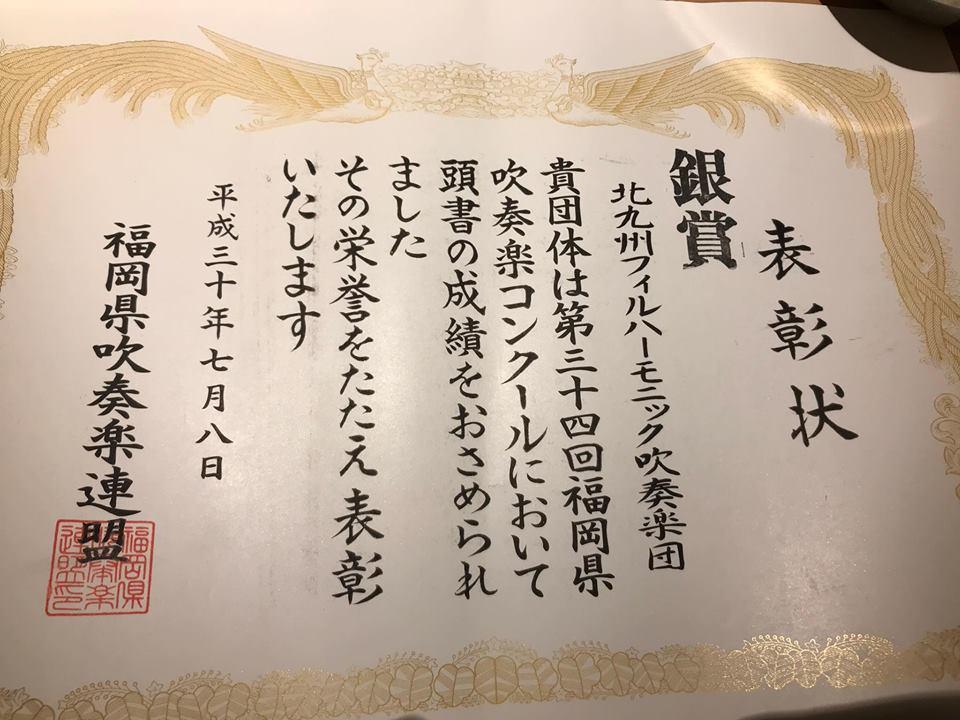 表彰状
銀賞
北九州フィルハーモニック吹奏楽団
貴団体は第三十四回福岡県
吹奏楽コンクールにおいて
頭書の成績をおさめられ
ました
その栄誉をたたえ表彰
いたします
平成三十年七月八日
福岡県吹奏楽連盟